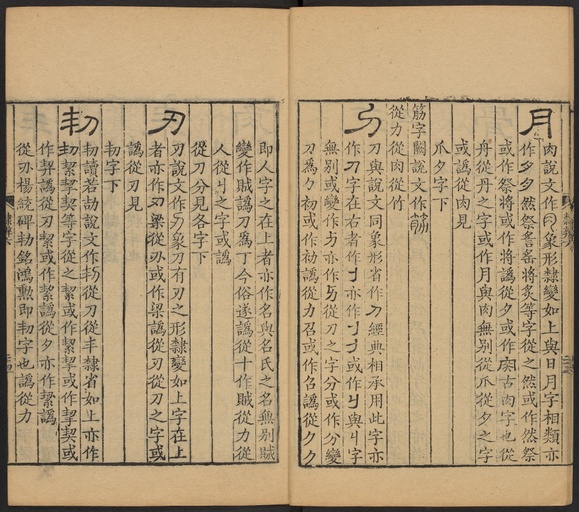 月
肉說文作象形隸變如上與日月字相類亦
作夕然祭將炙等字從之然或作然祭
或作祭將譌從夕或作古肉字也從
丹從丹之字或作月與肉無別從爪從夕之字
或譌從肉見
爪夕字下
筋字闕說文作筋
從力從肉從竹
刀與說文同象形省作刀經典相承用此字亦
作刀字在右者作刂亦作或作刂與丩字
無別或變作方亦作從刀之字分或作分變
刀爲ク初或作初譌從力召或作譌從夕ク
即人字之在上者亦作名與名氏之名無別賊
變作賊譌刀爲丁今俗遂譌從十作賊從力從
人從丩之字或譌
從刀分見各字下
刃
刃說文作象刀有刃之形隸變如上字在上
者亦作刃梁從或作梁譌從刃從刀之字或
譌從刃見
㓞字下
㓞
㓞讀若劼說文作㓞從刀從丯隸省如上亦作
㓞絜挈契等字從之絜或作絜挈或作挈契或
作契譌從刃絜或作絜譌從夕亦作絜譌
從刅楊統碑㓞銘鴻勳即㓞字也譌從力